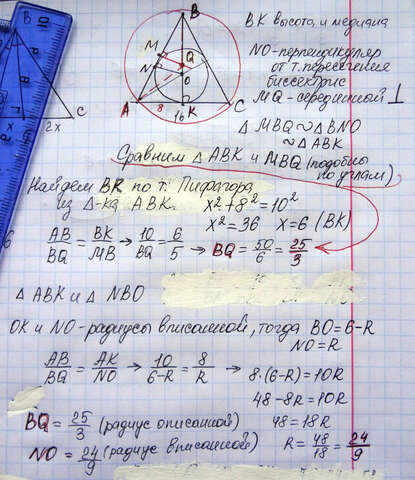 B
C
x
2x
B
M
N
Q
O
A
8
16
K
C
BK высота, и медиана
NO-перпендикуляр
от т. пересечения
биссектрис
MQ-серединный ⊥
Δ MBQ ~ Δ BNO
~ Δ ABK
Сравним Δ ABK и MBQ (подобны
по углам)
Найдем BK по т. Пифагора
из Δ-ка ABK.
x²+8²=10²
x²=36 x=6 (BK)
AB/BQ = BK/MB → 10/BQ = 6/5 → BQ = 50/6 = 25/3
Δ ABK и Δ NBO
OK и NO-радиусы вписанной, тогда BO=6-R
NO=R
AB/BQ = AK/NO → 10/6-R = 8/R → 8·(6-R)=10R
48-8R=10R
BQ = 25/3 (радиус описанной)
48=18R
NO = 24/9 (радиус вписанной)
R = 48/18 = 24/9